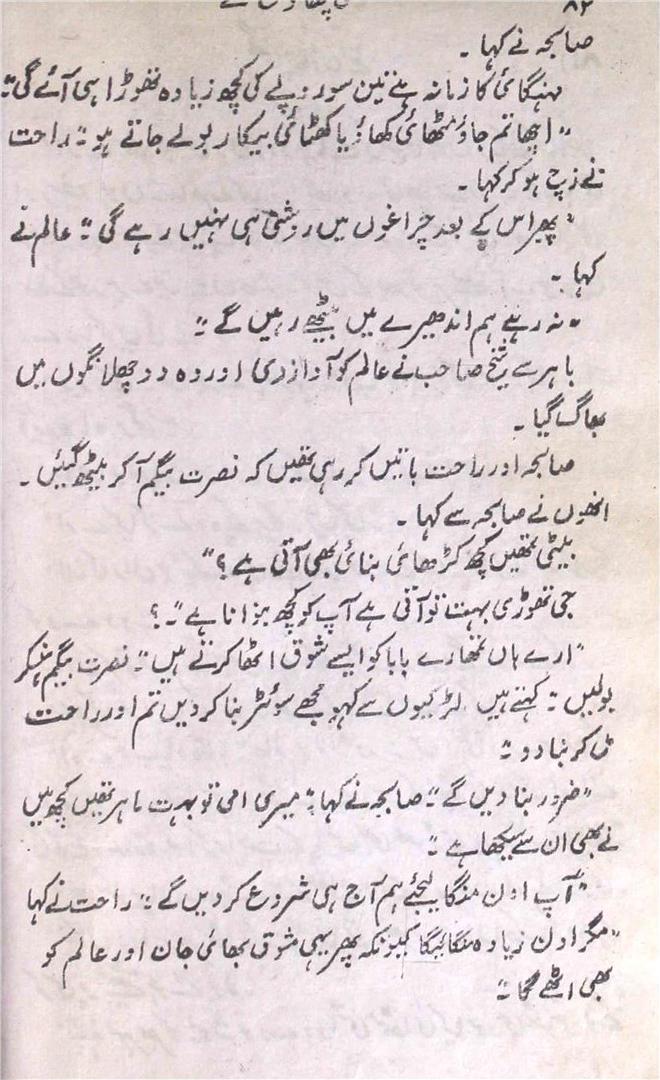 ۸۲
صابحہ نے کہا ۔
مہنگائی کا زمانہ ہے تین سو روپلے کی کچھ زیادہ تھوڑا ہی آئے گی"
" اچھا تم جاؤ مٹھائی کھاؤ یا کھٹائی بیکار بولے جاتے ہو " راحت
نے زچ ہو کر کہا ۔
" پھر اس کے بعد چراغوں میں روشنی ہی نہیں رہے گی " عالم نے
کہا ۔
" نہ رہے ہم اندھیرے میں بیٹھے رہیں گے "
باہر سے شیخ صاحب نے عالم کو آواز دی اور وہ دو چھلانگوں میں
بھاگ گیا ۔
صابحہ اور راحت باتیں کر رہی تھیں کہ نصرت بیگم آکر بیٹھ گئیں ۔
انھوں نے صابحہ سے کہا ۔
بیٹی تمھیں کچھ کڑھائی بنائی بھی آتی ہے ؟"
جی تھوڑی بہت تو آتی ہے آپ کو کچھ بنوانا ہے " ؟
" ارے ہاں تمھارے پاپا کو ایسے شوق اٹھا کرتے ہیں " نصرت بیگم ہنسکر
بولیں " کہتے ہیں لڑکیوں سے کہو مجھے سوئٹر بنا کر دیں تم اور راحت
مل کر بنا دو "
" ضرور بنا دیں گے " صابحہ نے کہا " میری امی تو بہت ماہر تھیں کچھ میں
نے بھی ان سے سیکھا ہے "
" آپ اون منگا لیجئے ہم آج ہی شروع کر دیں گے " راحت نے کہا
" مگر اون زیادہ منگائیگا کیونکہ پھر یہی شوق بھائی جان اور عالم کو
بھی اٹھے گا "